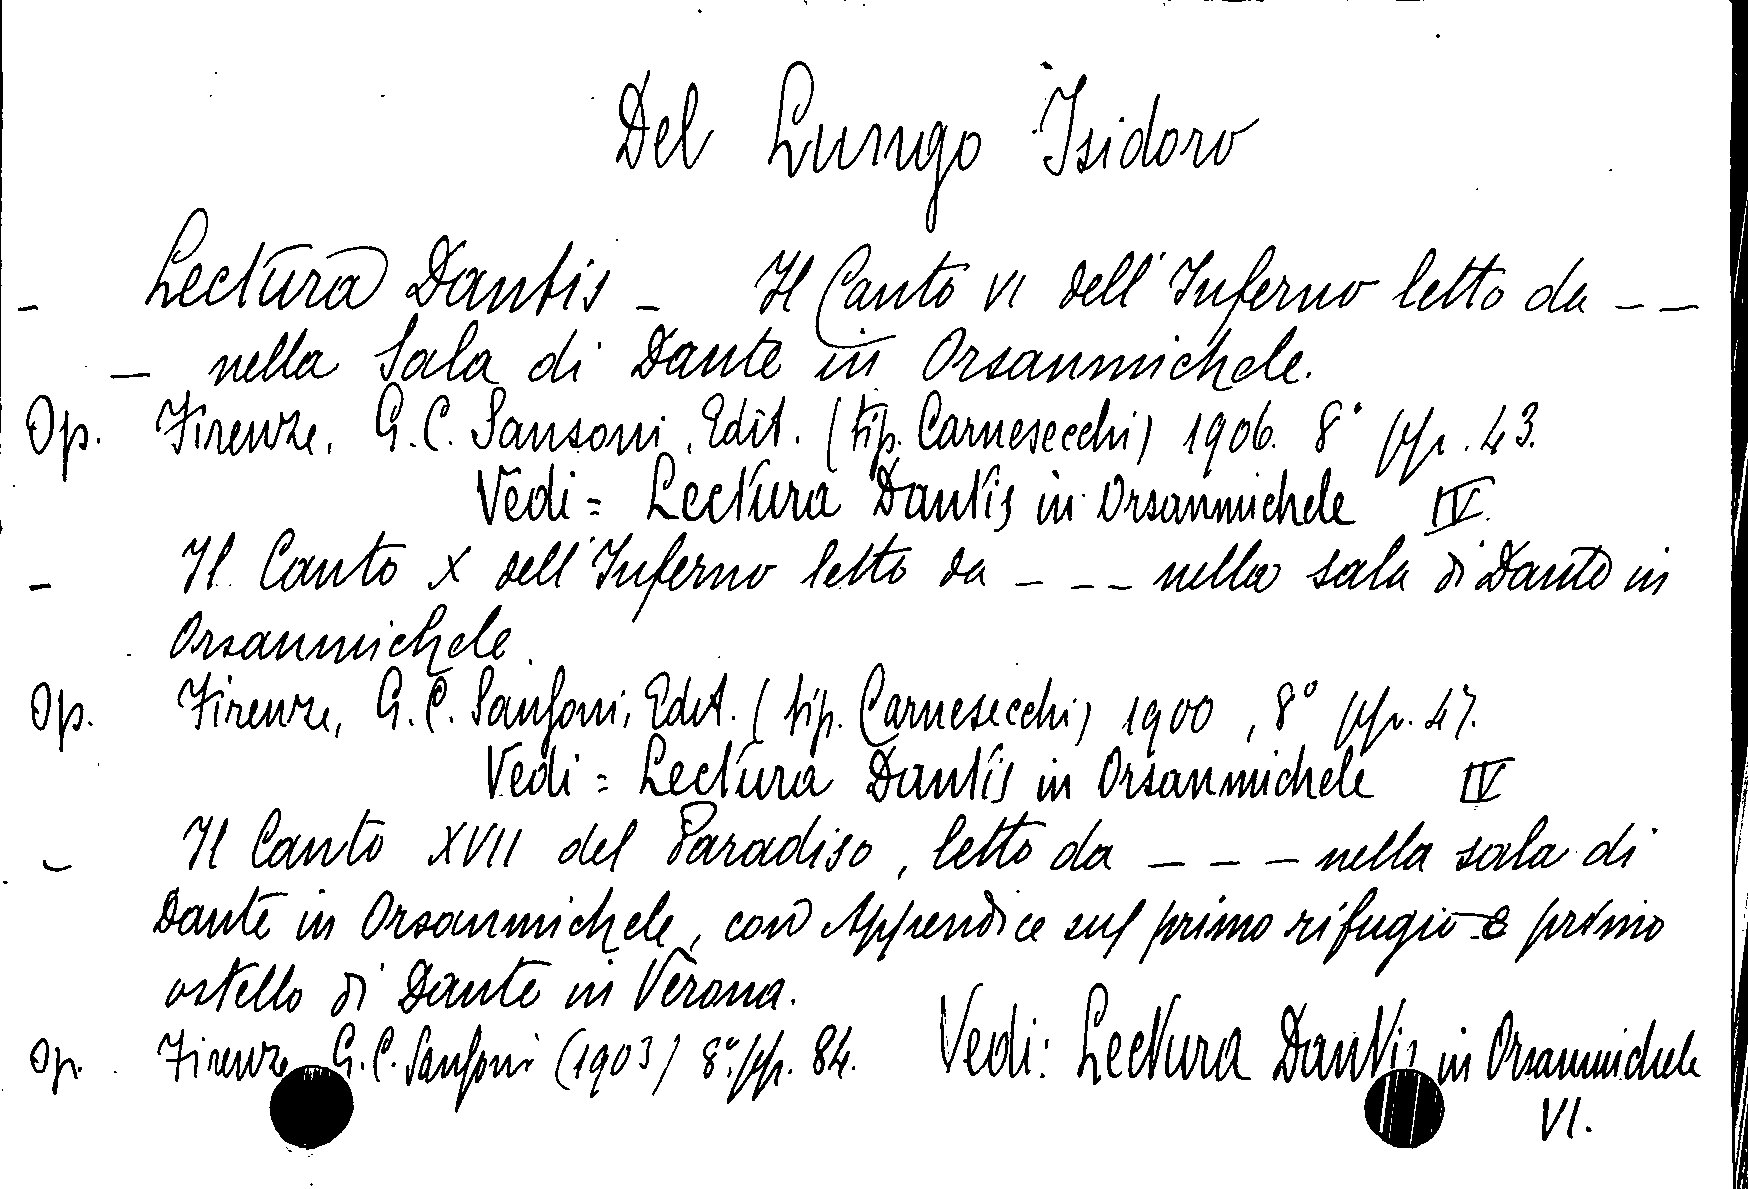 Del Lungo Isidoro
- Lectura Dantis - Il Canto VI dell'Inferno letto da _ _
_ nella Sala di Dante in Orsanmichele.
Op. Firenze, G. C. Sansoni, Edit. (tip. Carnesecchi) 1906. 8° pp. 43.
Vedi = Lectura Dantis in Orsanmichele IV.
- Il Canto X dell'Inferno letto da _ _ _ nella sala di Dante in
Orsanmichele.
Op. Firenze, G. C. Sansoni, Edit. (tip. Carnesecchi) 1900, 8° pp. 47.
Vedi = Lectura Dantis in Orsanmichele IV
- Il Canto XVII del Paradiso, letto da _ _ _ nella sala di
Dante in Orsanmichele, con Appendice sul primo rifugio e primo
ostello di Dante in Verona.
Op. Firenze G. C. Sansoni (1903) 8° pp. 84. Vedi: Lectura Dantis in Orsanmichele
VI.